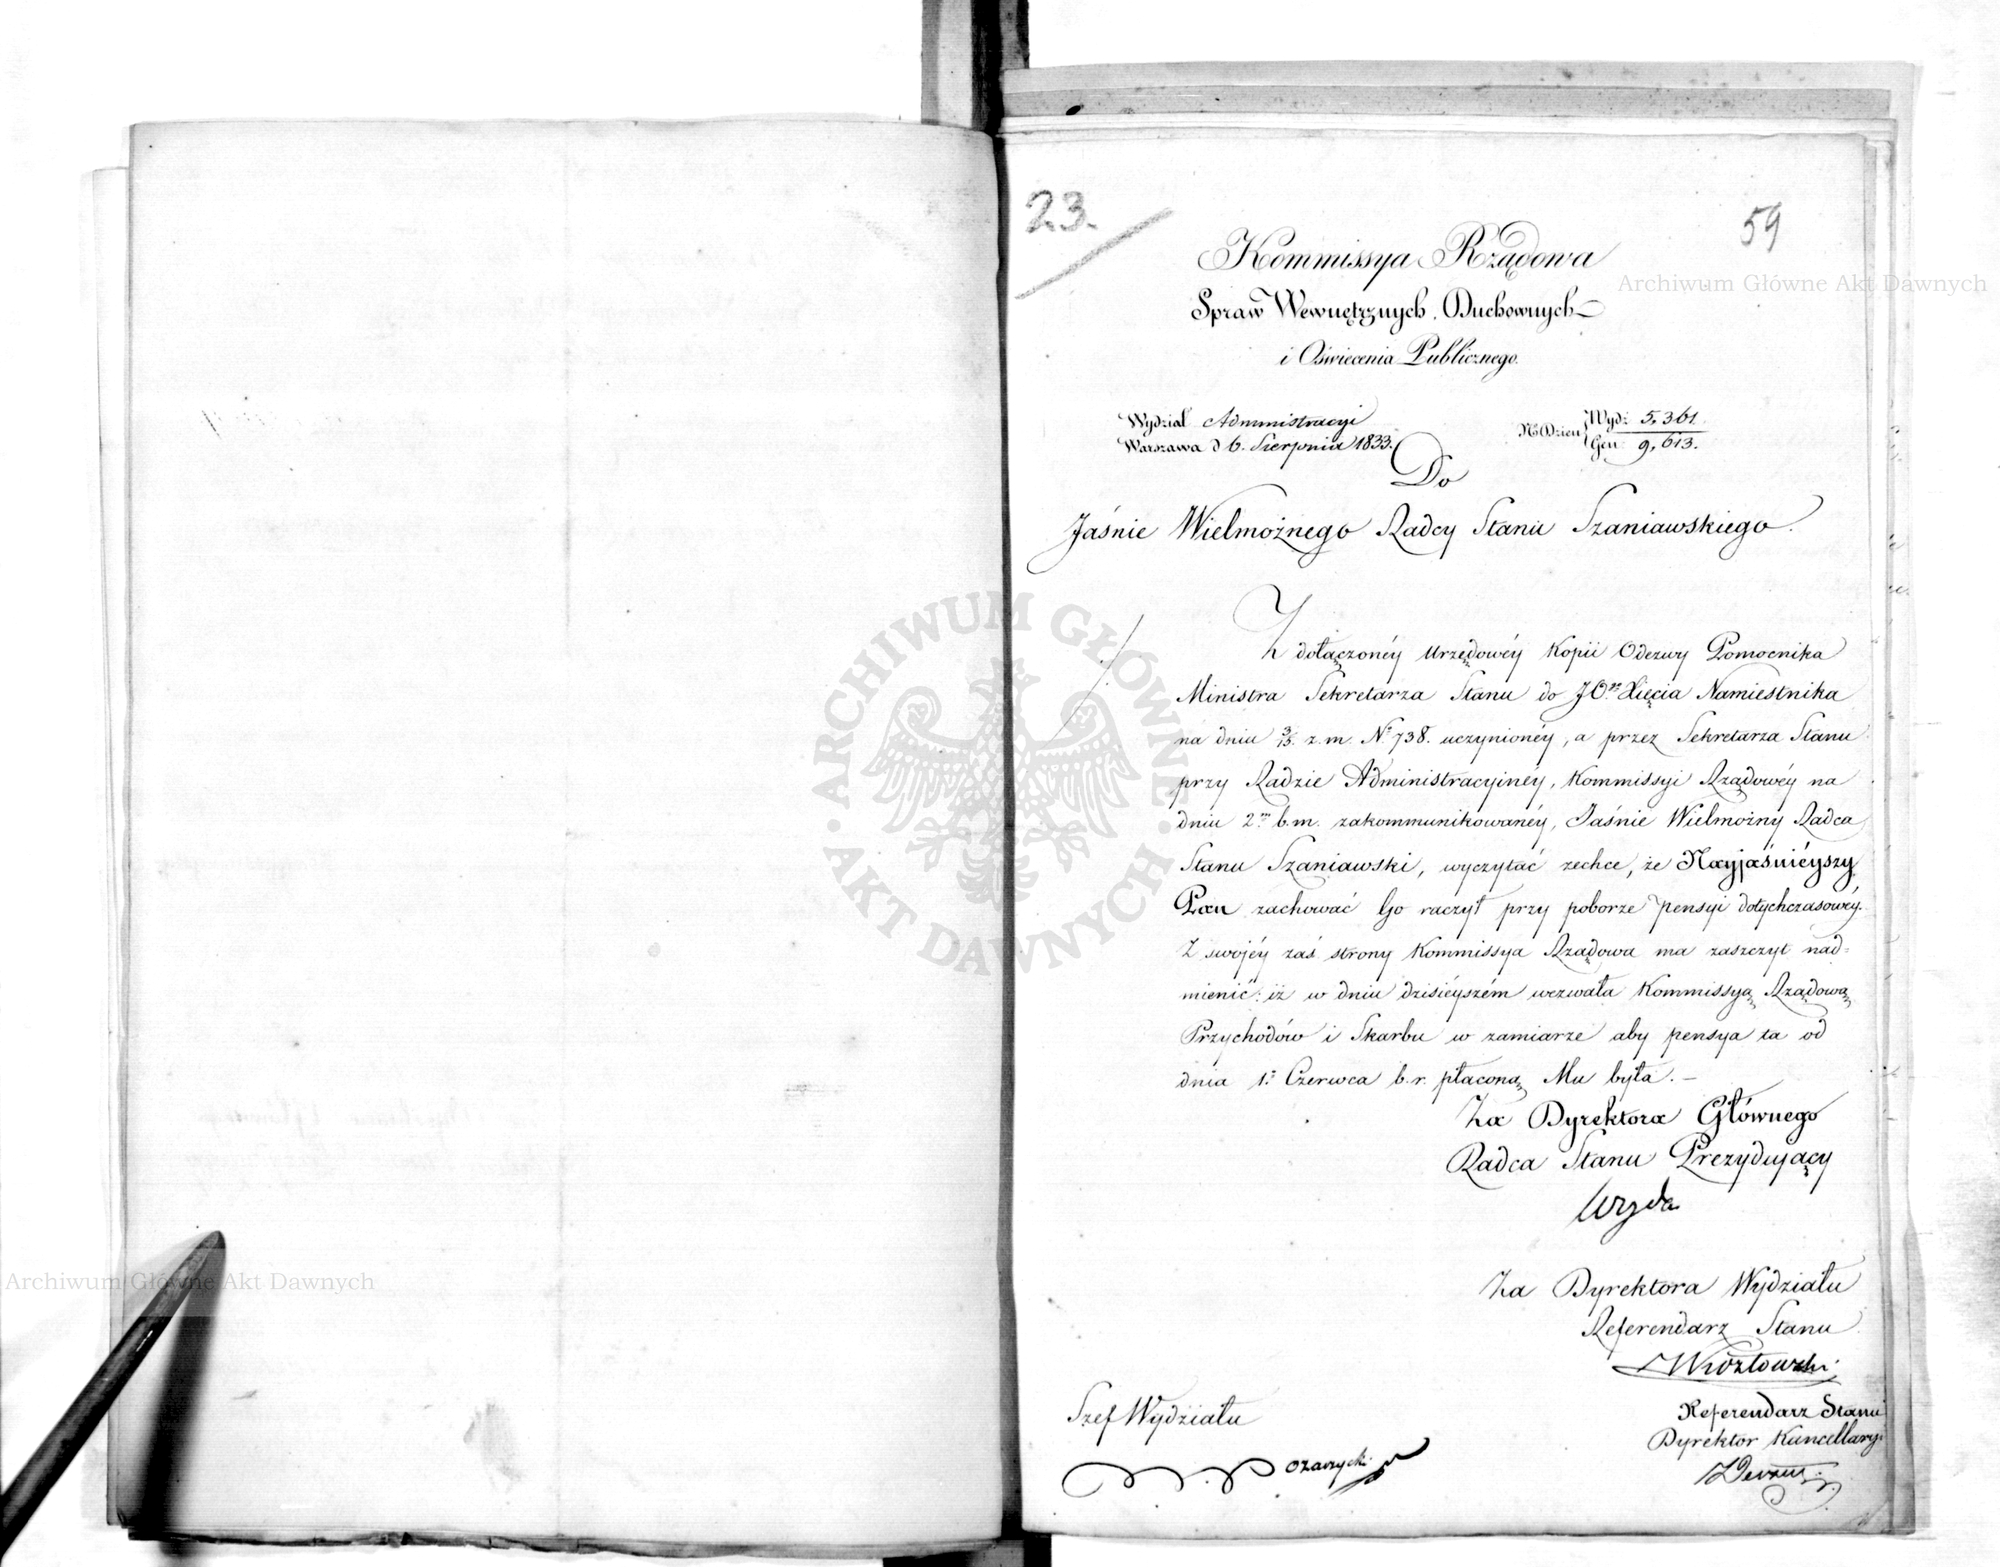 23.
59
Kommissya Rządowa
Spraw Wewnętrznych, Duchownych
i Oświecenia Publicznego.
Wydział Administracyi
Warszawa d 6. Sierpnia 1833.
Nr Dzien Wydz: 5,361.
Gen: 9,613.
Do
Jaśnie Wielmożnego Radcy Stanu Szaniawskiego.
Z dołączonéy Urzędowéy Kopii Odezwy Pomocnika
Ministra Sekretarza Stanu do JO. Xięcia Namiestnika
na dniu 3/15. z. m. Nr 738. uczynionéy, a przez Sekretarza Stanu
przy Radzie Administracyinéy, Kommissyi Rządowéy na
dniu 2m b. m. zakommunikowanéy, Jaśnie Wielmożny Radca
Stanu Szaniawski, wyczytać zechce, że Nayjaśniéyszy
Pan zachować Go raczył przy poborze pensyi dotychczasowéy.
Z swojéy zaś strony Kommissya Rządowa ma zaszczyt nad=
mienić: iż w dniu dzisiéyszém wezwała Kommissyą Rządową
Przychodów i Skarbu w zamiarze aby pensya ta od
dnia 1. Czerwca b. r. płaconą Mu była. —
Za Dyrektora Głównego
Radca Stanu Prezydujący
Za Dyrektora Wydziału
Referendarz Stanu
Referendarz Stanu
Dyrektor Kancellaryi
Szef Wydziału
Archiwum Główne Akt Dawnych
Archiwum Główne Akt Dawnych
ARCHIWUM GŁÓWNE · AKT DAWNYCH ·